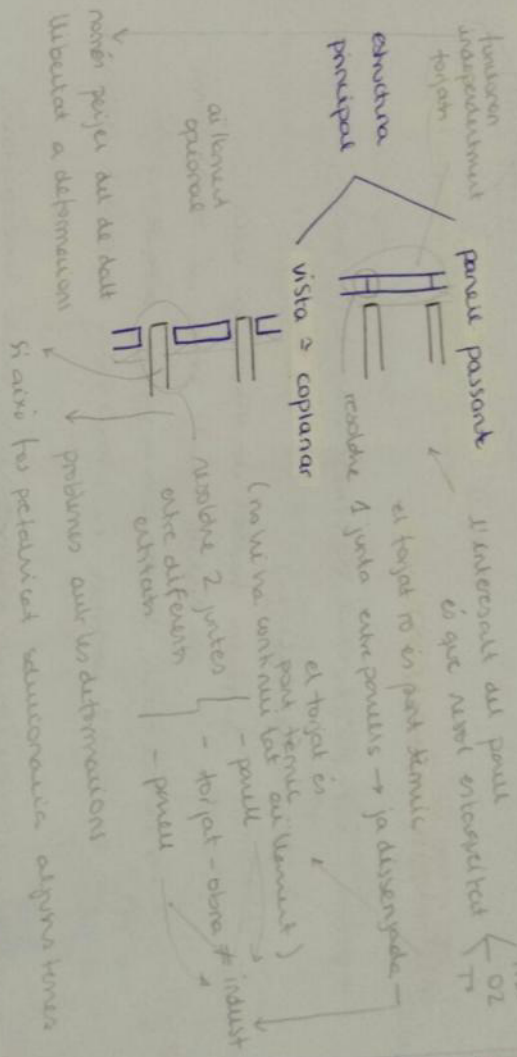 funcionen
independentment
forjats
estructura
principal
panell passant
l'interessant del panell
és que resol estanqueitat
O2
Tº
el forjat no és pont tèrmic
resoldre 1 junta entre panells → ja dissenyada
vista → coplanar
aïllament
opcional
el forjat és
pont tèrmic
(no hi ha continuïtat aïllament)
resoldre 2 juntes
entre diferents
entitats
- panell
- forjat - obra ≠ indust
- panell
només penjes del de dalt
llibertat a deformacions
problemes amb les deformacions
si això fos prefabricat solucionaria alguns temes